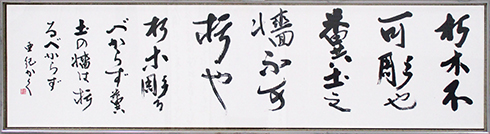 朽木不
可彫也
糞土之
牆不可
杇也
朽木彫る
べからず糞
土の牆は杇
るべからず